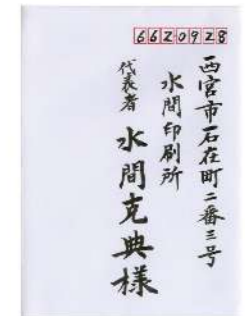 6620928
西宮市石在町二番三号
水間印刷所
代表者
水間克典様